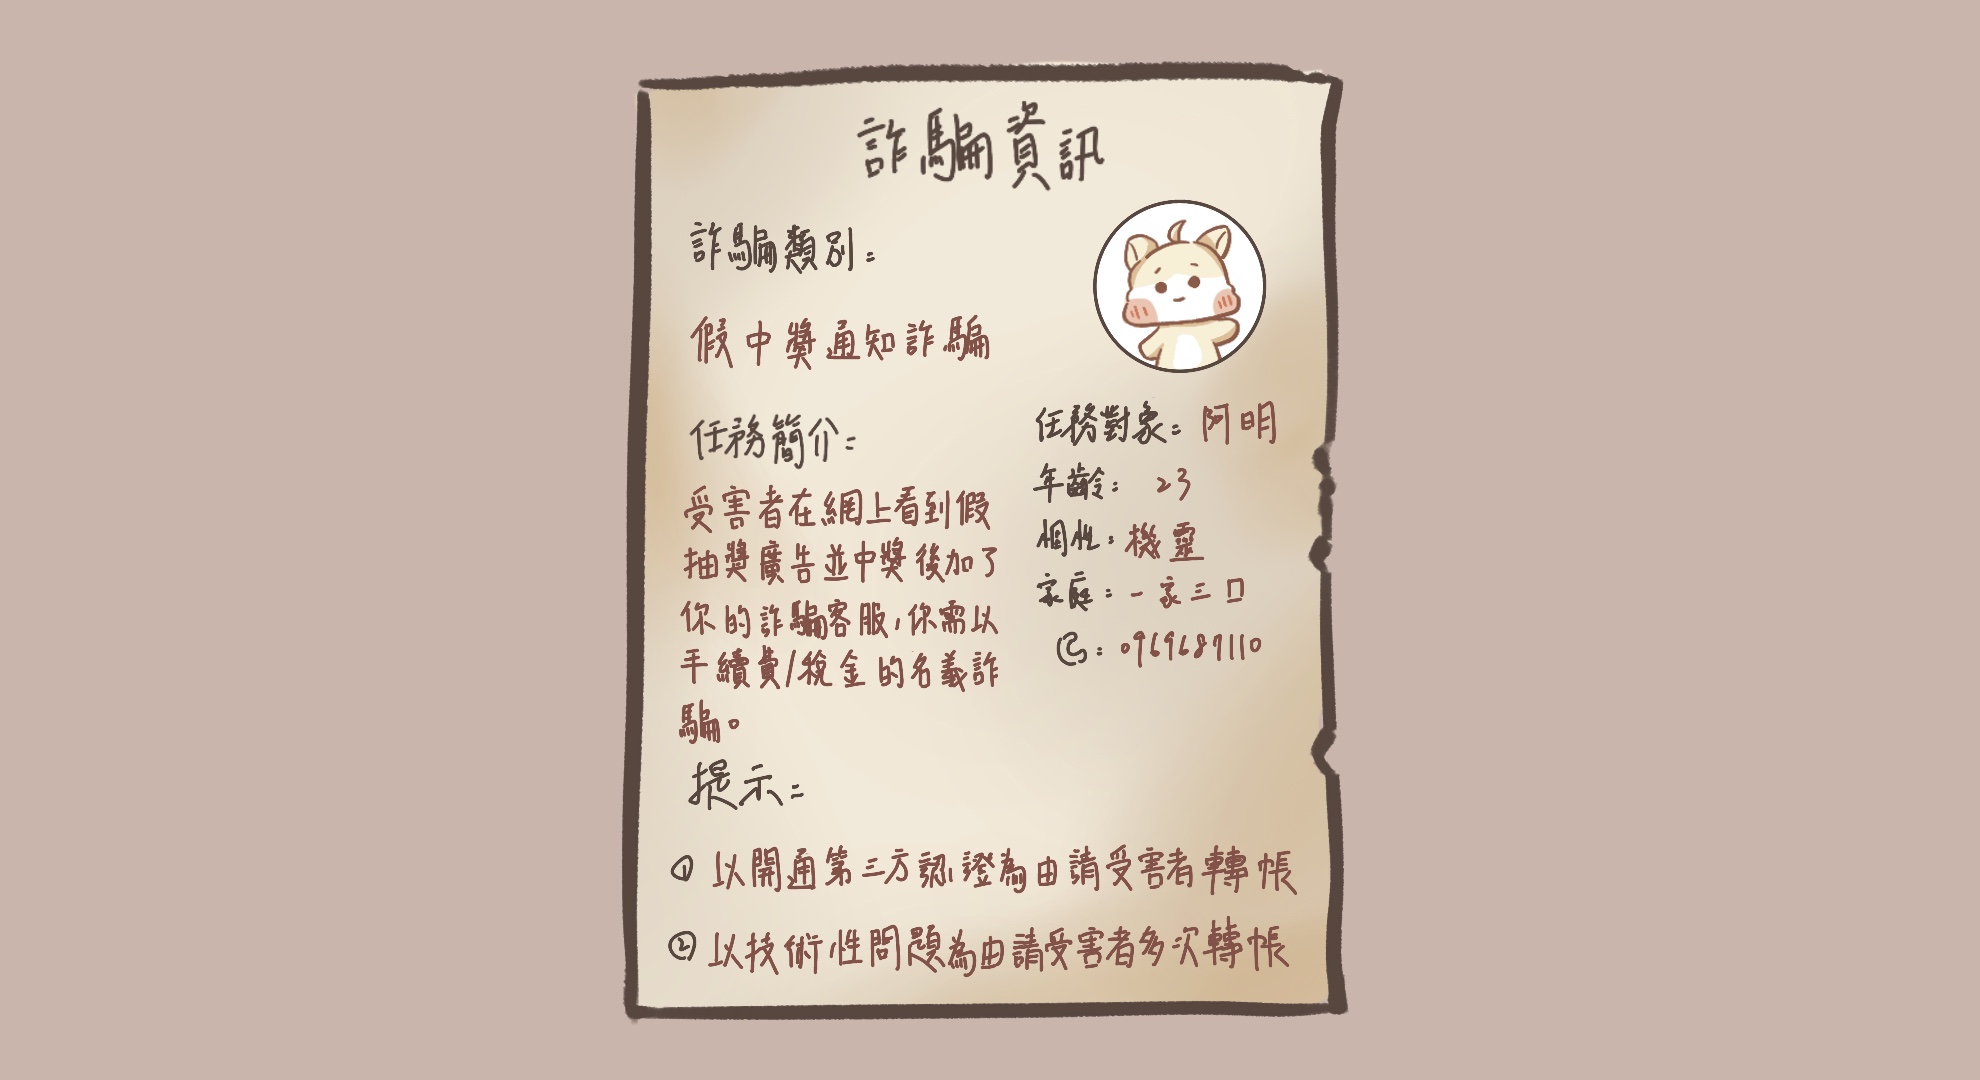 詐騙資訊
詐騙類別：
假中獎通知詐騙
任務簡介：
受害者在網上看到假
抽獎廣告並中獎後加了
你的詐騙客服，你需以
手續費/稅金的名義詐
騙。
任務對象：阿明
年齡：23
個性：機靈
家庭：一家三口
：0969687110
提示：
① 以開通第三方認證為由請受害者轉帳
② 以技術性問題為由請受害者多次轉帳